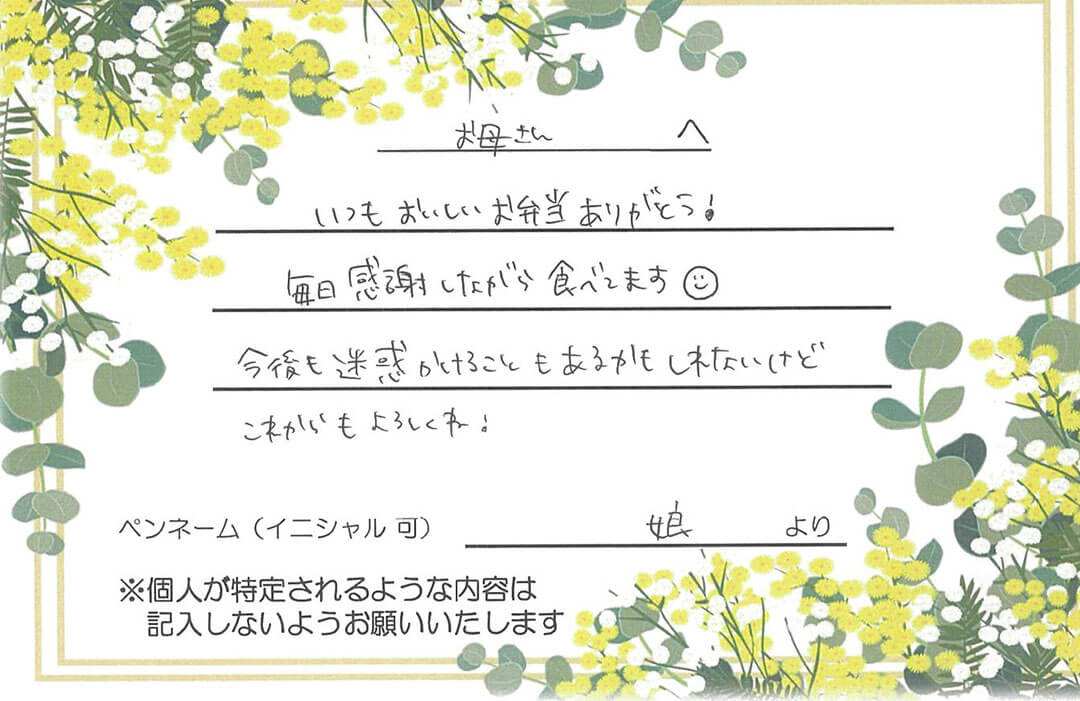 お母さん へ
いつもおいしいお弁当ありがとう!
毎日感謝しながら食べてます☺
今後も迷惑かけることもあるかもしれないけど
これからもよろしくね!
ペンネーム(イニシャル 可) 娘 より
※個人が特定されるような内容は
記入しないようお願いいたします